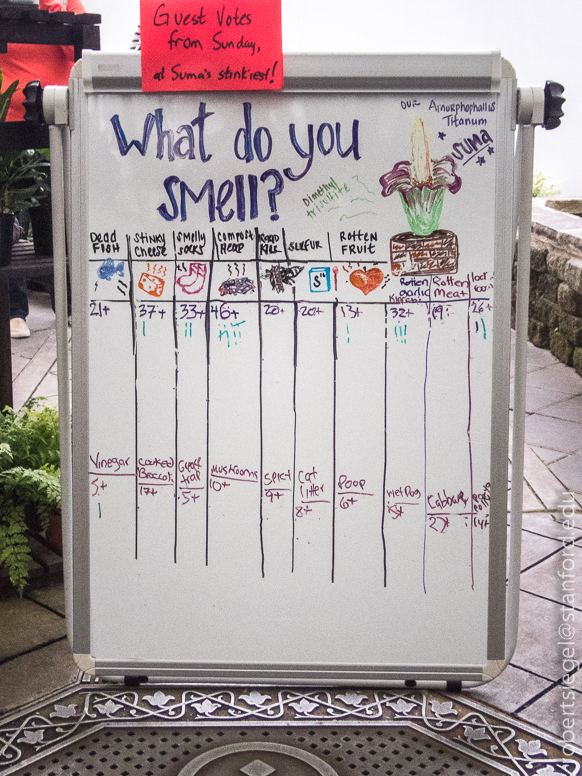 Guest Votes
from Sunday,
at Suma's stinkiest!
What do you
smell?
Our Amorphophallus
Titanum
SUMA
Dimethyl
DEAD
FISH
STINKY
CHEESE
SMELLY
SOCKS
COMPOST
HEAP
ROAD
KILL
SULFUR
ROTTEN
FRUIT
S
Rotten
garlic
Rotten
meat
21+
37+
33+
46+
20+
20+
13+
32+
26+
Vinegar
5+
Cooked
Broccoli
17+
5+
Mushrooms
10+
9+
Cat
litter
8+
Poop
6+
Wet Dog
Cabbage
robertsiegel@stanford.edu